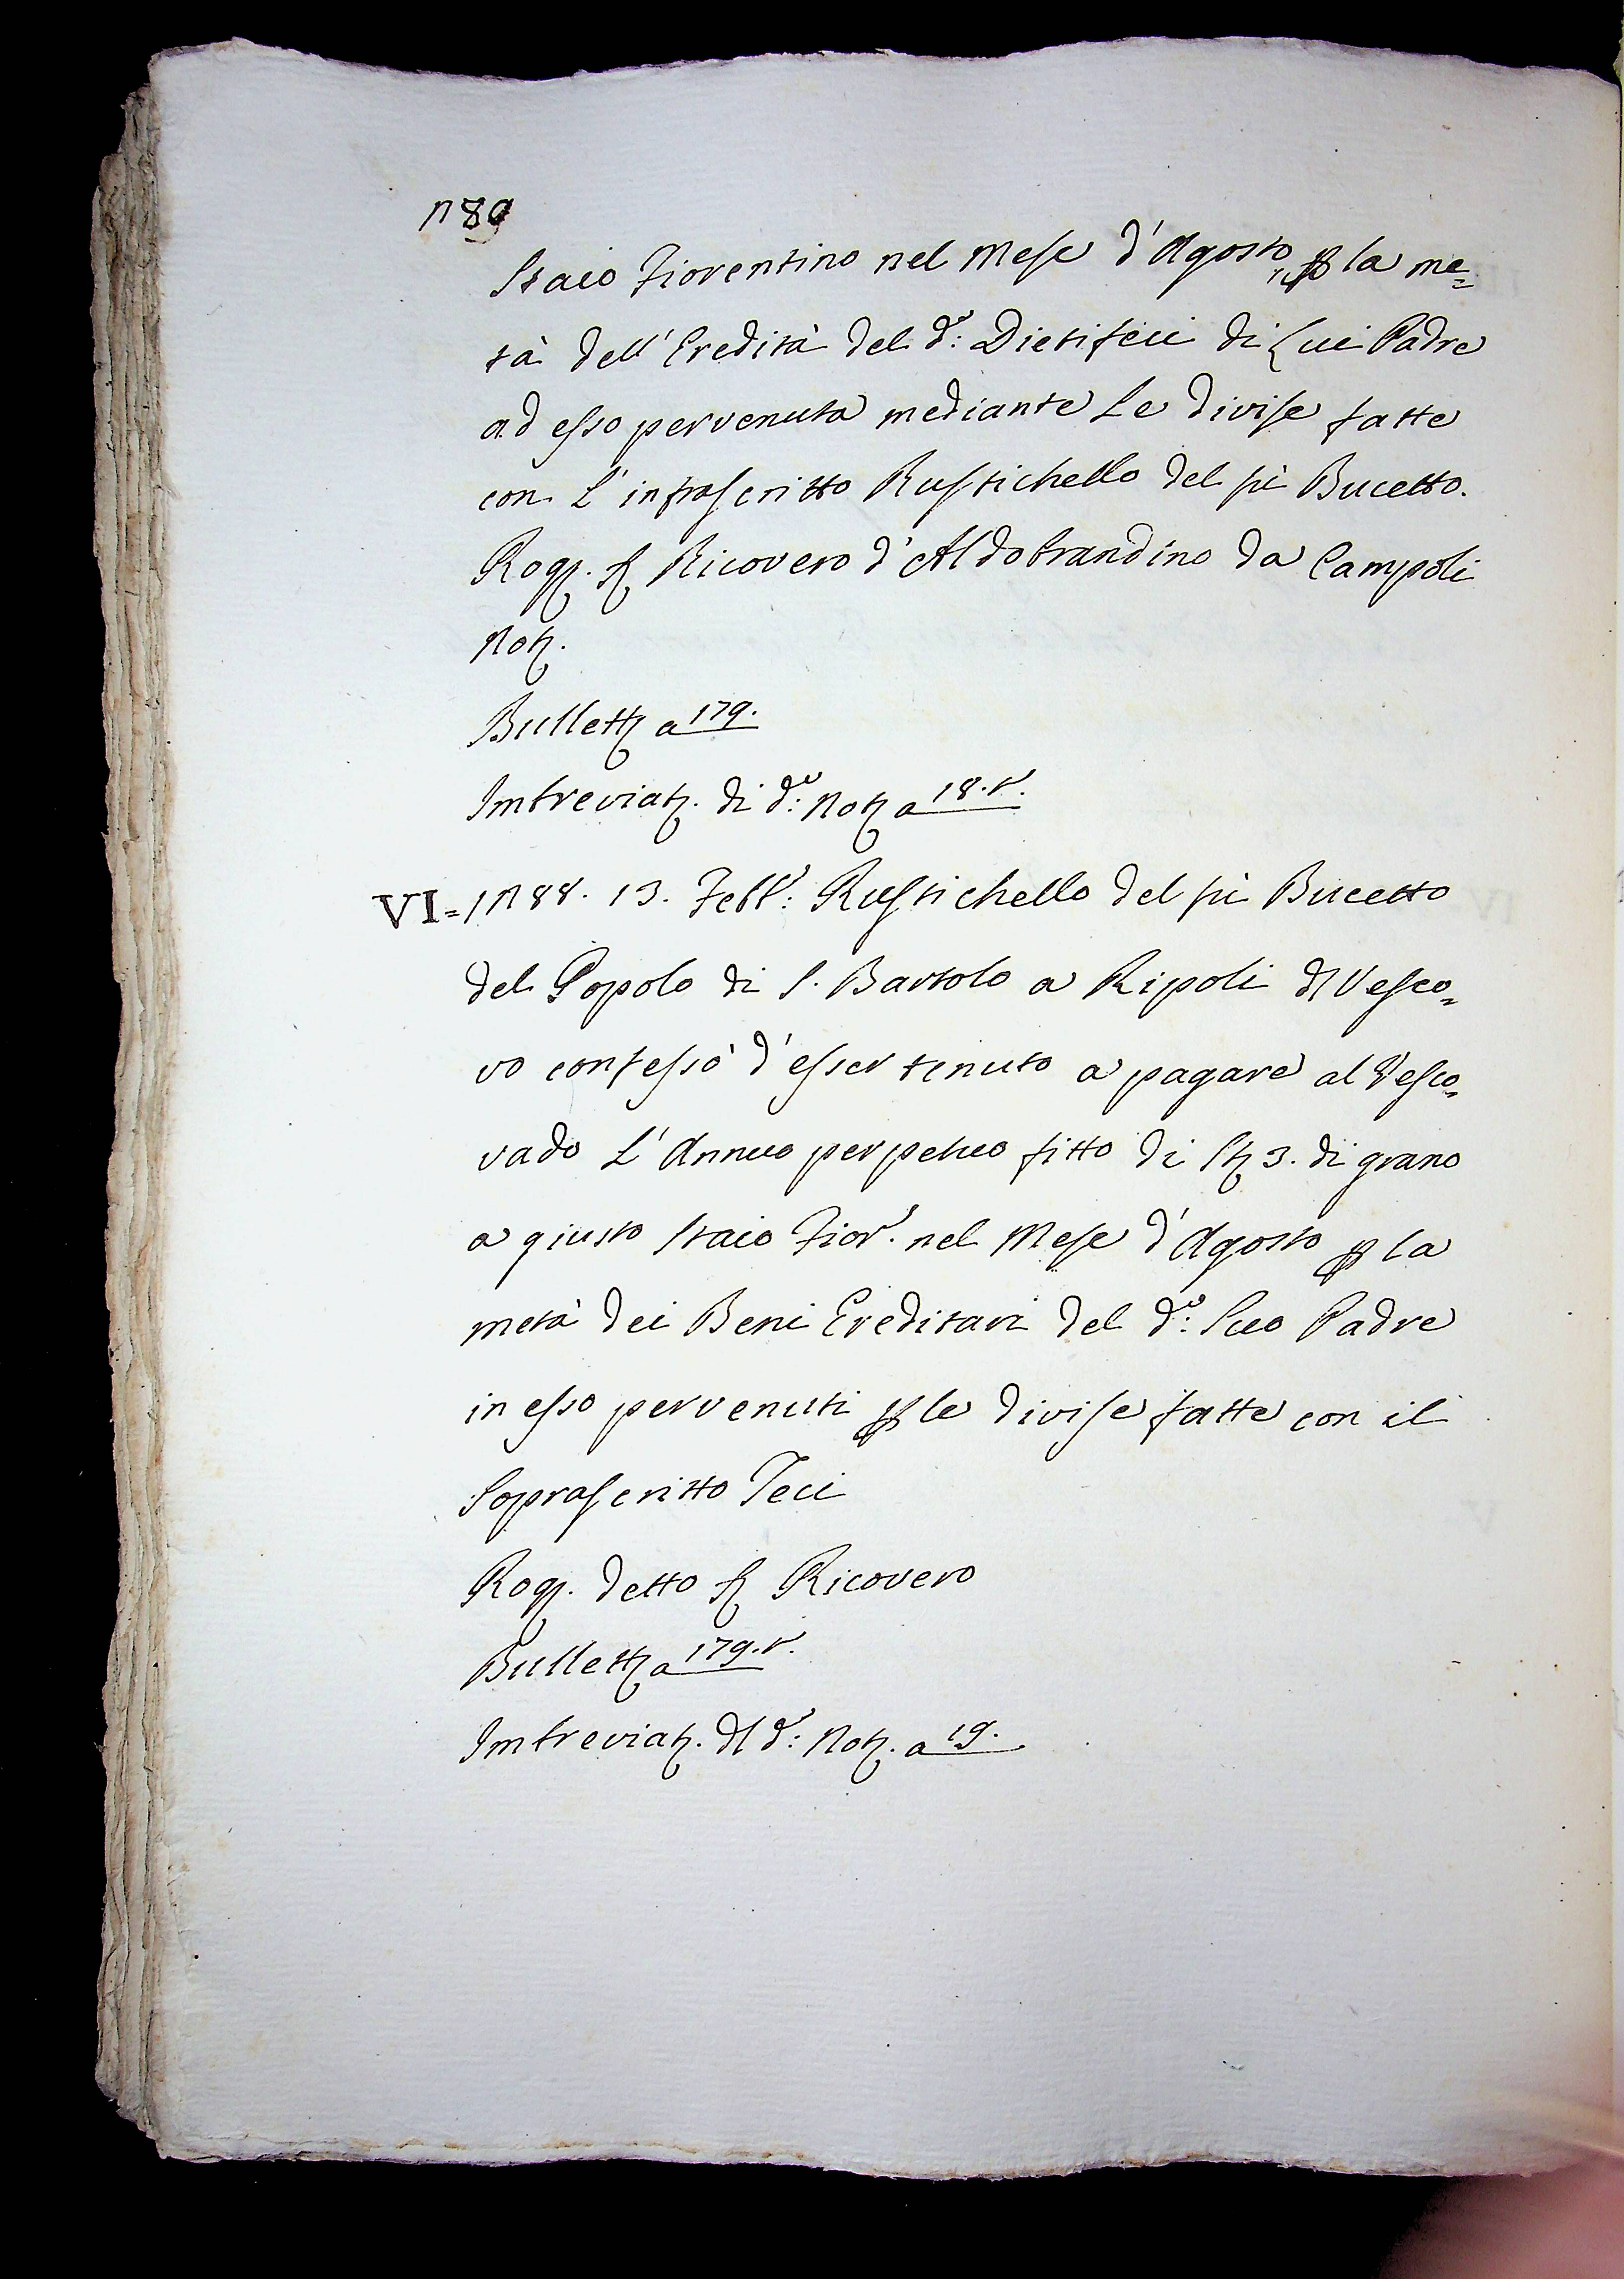 289
Staio Fiorentino nel Mese d'Agosto p la me=
tà dell'Eredità del d.o: Dietifeci di Lui Padre
ad esso pervenuta mediante le divise fatte
con l'infrascritto Rustichello del fù Bucetto.
Rog. S. Ricovero d'Aldobrandino da Campoli
Not.
Bullett. a 179.
Imbreviat. di d.o: Not. a 18.v.
VI = 1288. 13. Febb.o: Rustichello del fù Bucetto
del Popolo di S. Bartolo a Ripoli d Vesco=
vo confessò d'esser tenuto a pagare al Vesco=
vado l'Annuo perpetuo fitto di St. 3. di grano
a giusto Staio Fior.o nel Mese d'Agosto p la
metà dei Beni Ereditari del d.o: Suo Padre
in esso pervenuti p le divise fatte con il
Soprascritto Feci
Rog. detto S. Ricovero
Bullett. a 179.v.
Imbreviat. d d.o: Not. a 19.